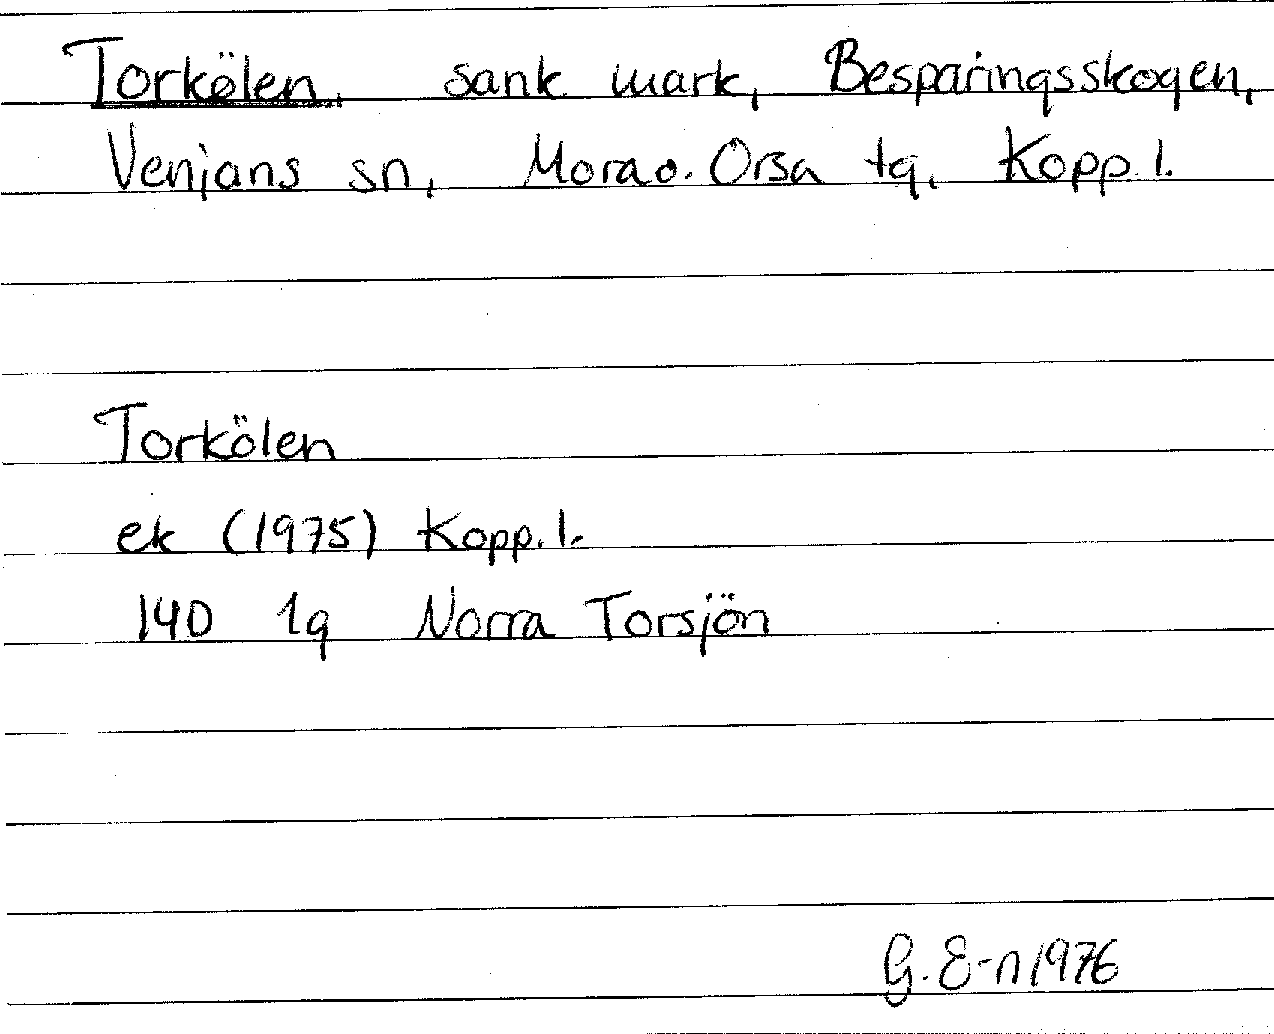 Torkölen, sank mark, Besparingsskogen,
Venjans sn, Mora o. Orsa tg, Kopp. l.
Torkölen
ek (1975) Kopp. l.
14D 1g Norra Torsjön
G. E-n 1976